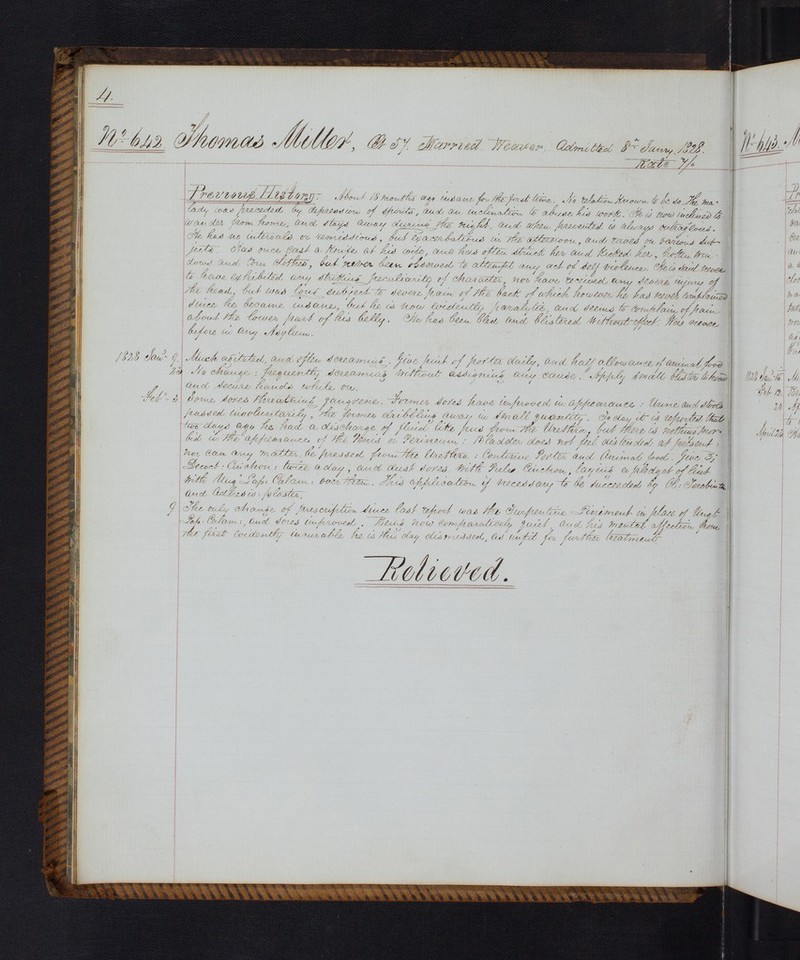 4.
No. 642 Thomas Miller, Æt 57. Married Weaver. Admitted 8th Jany. 1828.
Rate 7/6
Previous History. About 18 months ago insane for the first time. No relation known to be so. The ma-
lady was preceded by depression of spirits, and an inclination to abuse his work. He is now inclined to
wander from home, and stays away during the night, and when prevented is always outrageous.
He has no intervals or remissions, but exacerbations in the afternoon, and raves on various sub-
jects. Has once cast a knife at his wife, and has often struck her and kicked her, broken win-
dows and torn clothes, but never been observed to attempt any act of self violence. He is said never
to have exhibited any striking peculiarity of character, nor have received any severe injury of
the head, but was long subject to severe pain of the back of which however he has never complained
since he became insane, but he is now evidently paralytic, and seems to complain of pain
about the lower part of his belly. He has been bled and blistered without effect. Was never
before in any Asylum.
1828 Jany. 9. Much agitated, and often screaming. Give pint of porter daily, and half allowance of animal food
No change: frequently screaming without assigning any cause. Apply small blister to
and secure hands while on.
Feb. 2 Some sores threatening gangrene. Former sores have improved in appearance: Urine and stools
passed involuntarily, the former dribbling away in small quantity. To day it is reported that
two days ago he had a discharge of fluid like pus from the Urethra, but there is nothing mor-
bid in the appearance of the Penis or Perineum: Bladder does not feel distended at present.
nor can any matter be pressed from the Urethra: Continue Porter and Animal food. Give ℥j
Decoct: Cinchon: twice a day, and dust sores with Pulv Cinchon, laying a pledget of lint
with Ung: Lap. Calam: over them. This application if necessary to be succeeded by Ol: Terebinth
and adhesive plaster.
9 The only change of prescription since last report was the Turpentine Liniment in place of Ungt
Lap. Calam; and sores improved. Being now comparatively quiet, and his mental affection from
the first evidently incurable he is this day dismissed, as unfit for further treatment
Relieved.
No. 643.